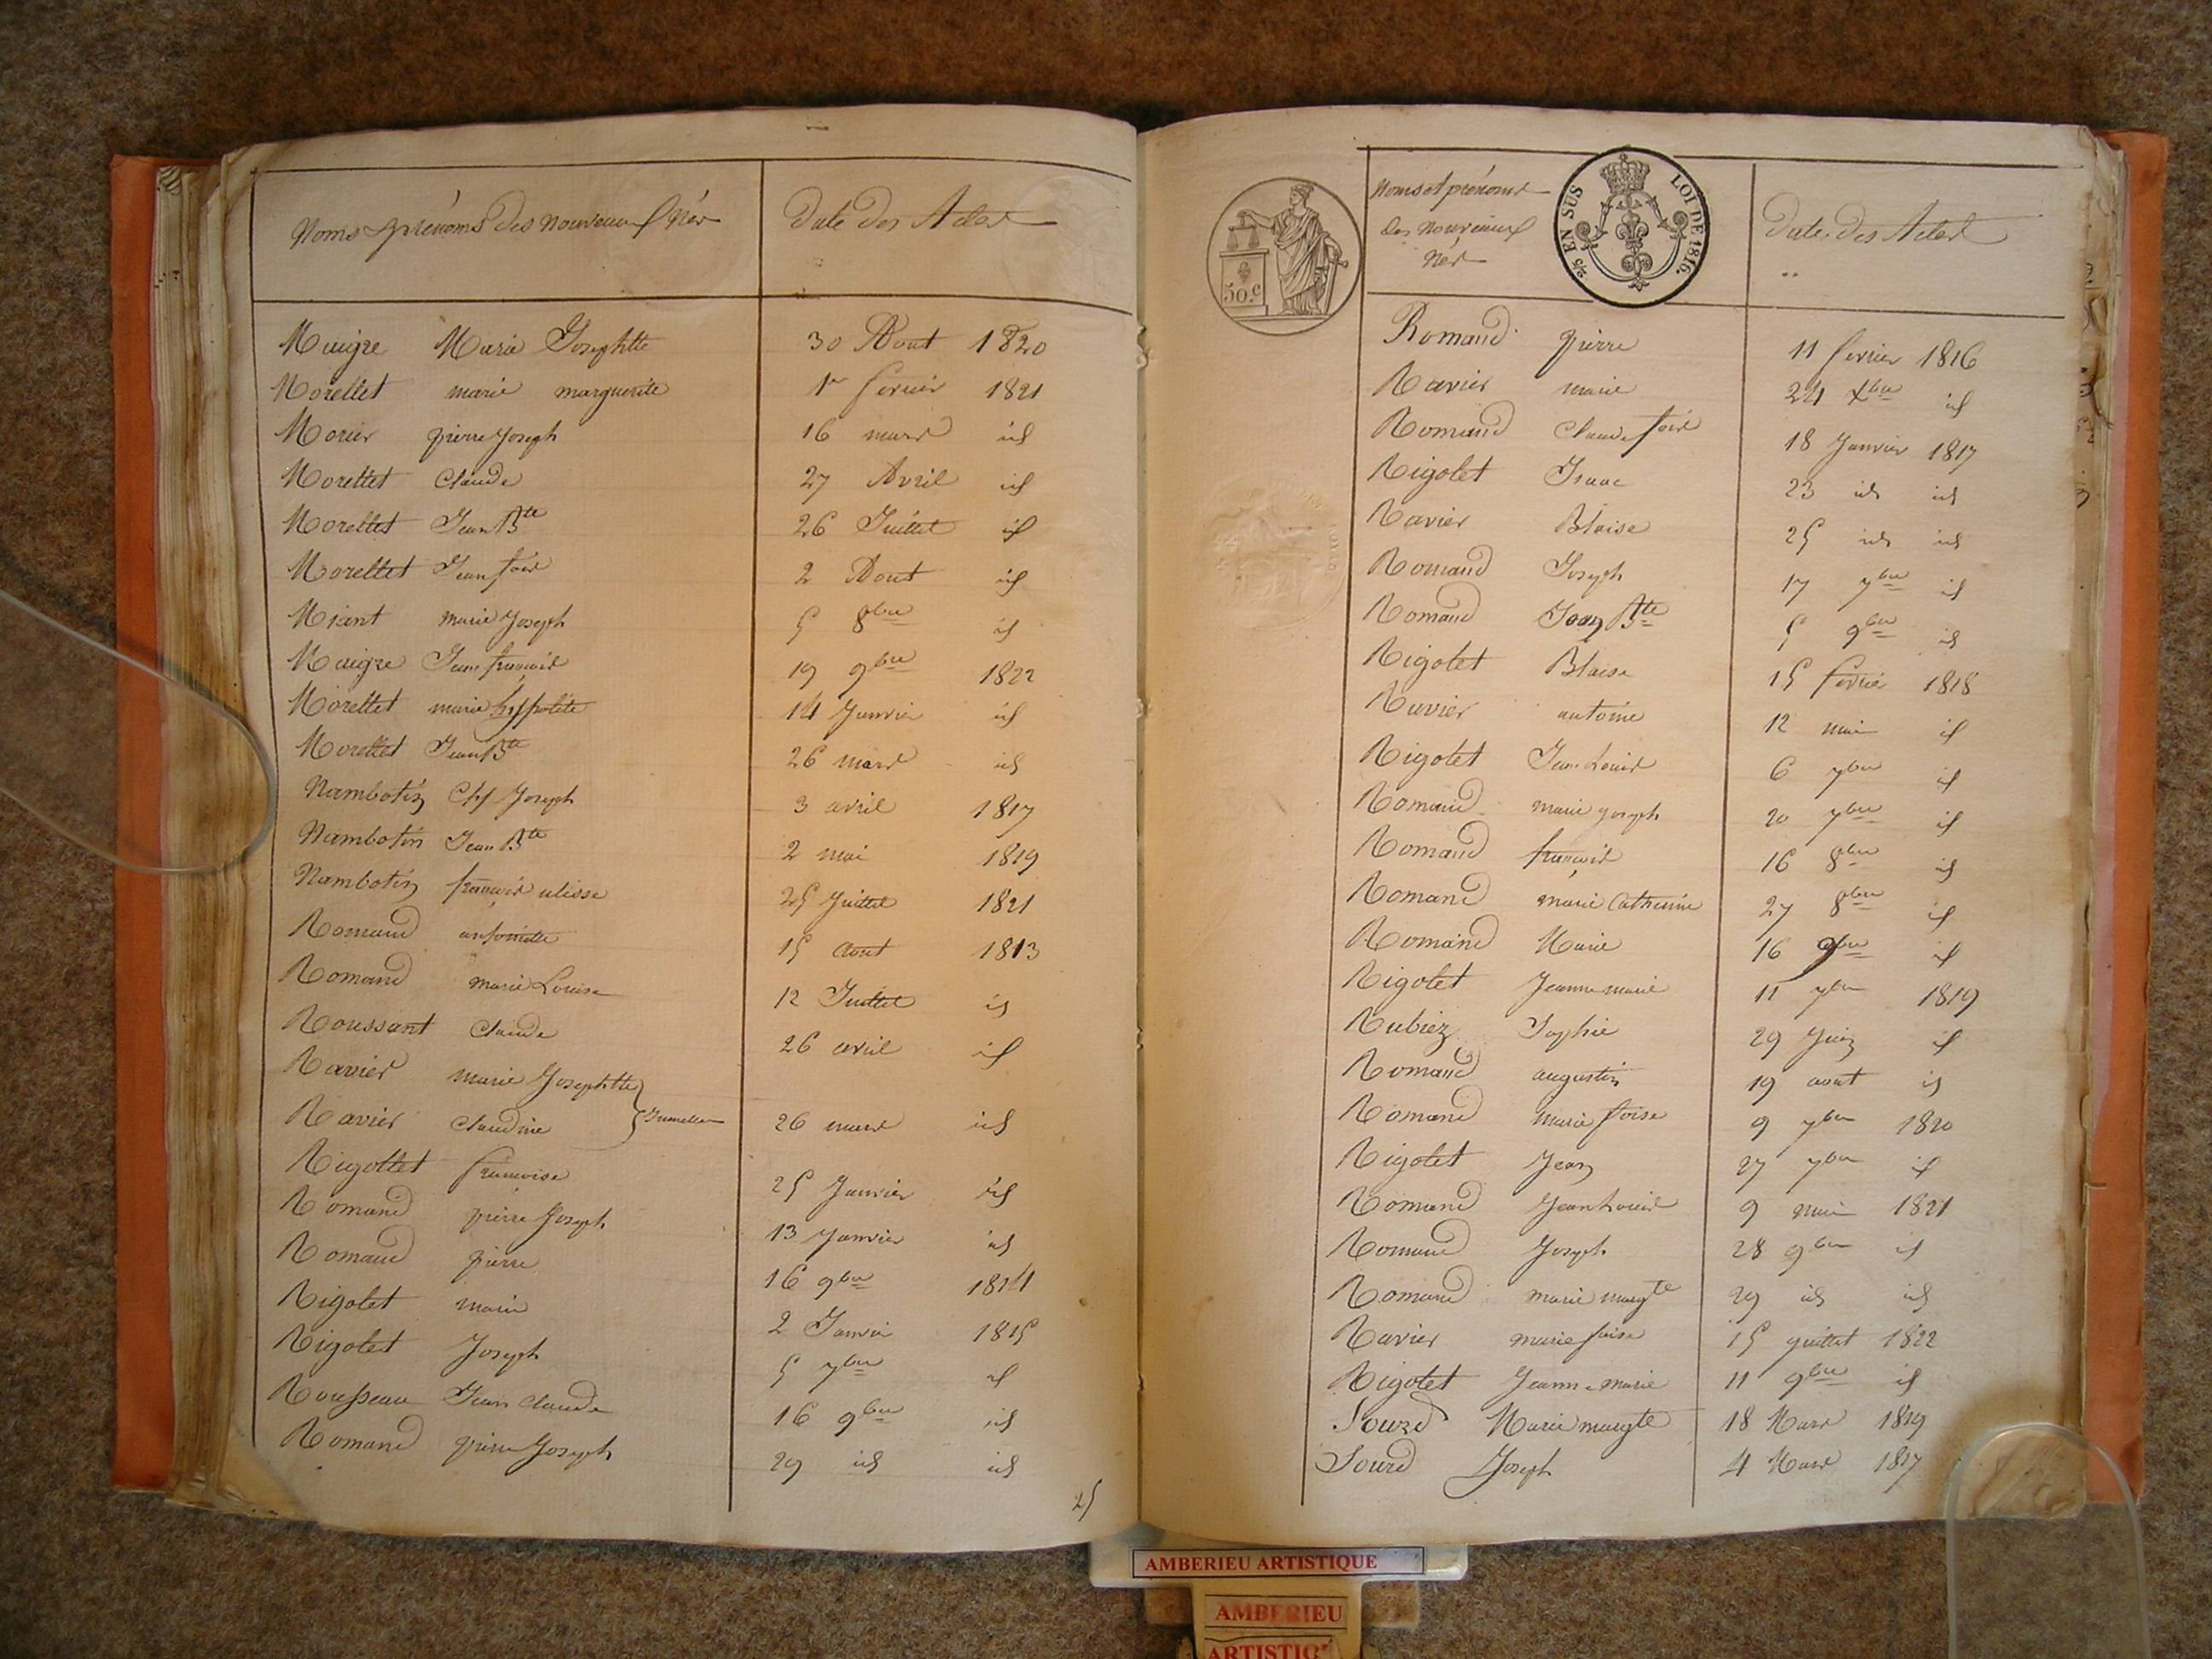 Noms et prénoms des Nouveaux Nés
Date des Actes
Maigre Marie Josephtte 30 Aout 1820
Morellet marie marguerite 1er fevrier 1821
Morier pierre Joseph 16 mars id
Morellet Claude 27 Avril id
Morellet Jean Bte 26 Juillet id
Morellet Jean fois 2 Aout id
marie Joseph 5 8bre id
Maigre Jean françois 19 9bre 1822
Morellet marie hyppolite 14 Janvier id
Morellet Jean Bte 26 mars id
Nambotin Joseph 3 avril 1817
Nambotin Jean Bte 2 mai 1819
Nambotin françois ulisse 25 Juillet 1821
Romand antoinette 15 aout 1813
Romand marie Louise 12 Juillet id
Roussant Claude 26 avril id
Ravier marie Josephtte
Ravier Claudine Jumelles 26 mars id
Rigollet francoise 25 Janvier id
Romand pierre Joseph 13 Janvier id
Romand pierre 16 9bre 1814
Rigolet marie 2 Janvier 1815
Rigolet Joseph 5 7bre id
Rousseau Jean Claude 16 9bre id
Romand pierre Joseph 29 id id
25
50.c
5/c EN SUS LOI DE 1816.
Noms et prénoms
des Nouveaux
Nés
Date des Actes
Romand pierre 11 fevrier 1816
Ravier marie 24 Xbre id
Romand Claude fois 18 Janvier 1817
Rigolet Isaac 23 id id
Ravier Blaise 25 id id
Romand Joseph 17 7bre id
Romand Jean Bte 5 9bre id
Rigolet Blaise 15 fevrier 1818
Ravier antoine 12 mai id
Rigolet Jean Louis 6 7bre id
Romand marie joseph 20 7bre id
Romand françois 16 8bre id
Romand marie Catherine 27 8bre id
Romand Marie 16 9bre id
Rigolet Jeanne marie 11 7bre 1819
Rubiez Sophie 29 Juin id
Romand augustin 19 aout id
Romand Marie foise 9 7bre 1820
Rigolet Jean 27 7bre id
Romand Jean Louis 9 mai 1821
Romand Joseph 28 9bre id
Romand marie margte 29 id id
Ravier marie foise 15 juillet 1822
Rigolet Jeanne marie 11 9bre id
Sourd Marie margte 18 Mars 1819
Sourd Joseph 4 Mars 1817
AMBERIEU ARTISTIQUE
AMBERIEU